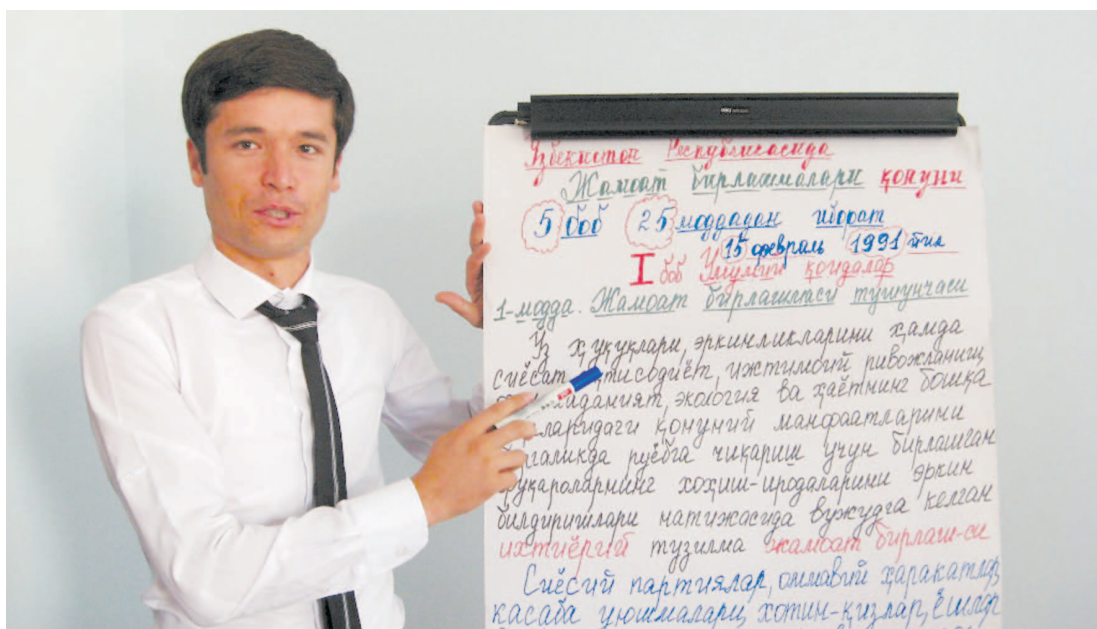 Ўзбекистон Республикасида
Жамоат бирлашмалари қонуни
5 боб 25 моддадан иборат
15 февраль 1991 йил
I боб Умумий қоидалар
1-модда. Жамоат бирлашмаси тушунчаси
Ўз ҳуқуқлари, эркинликларини ҳамда
сиёсат, тисодиёт, ижтимоий ривожланиш,
маданият, экология ва ҳаётнинг бошқа
ларидаги қонуний манфаатларини
галикда рўёбга чиқариш учун бирлашган
фуқароларнинг хоҳиш-иродаларини эркин
билдиришлари натижасида вужудга келган
ихтиёрий тузилма жамоат бирлаш-си
Сиёсий партиялар, оммавий ҳаракатлар,
касаба уюшмалари, хотин-қизлар, ёшлар